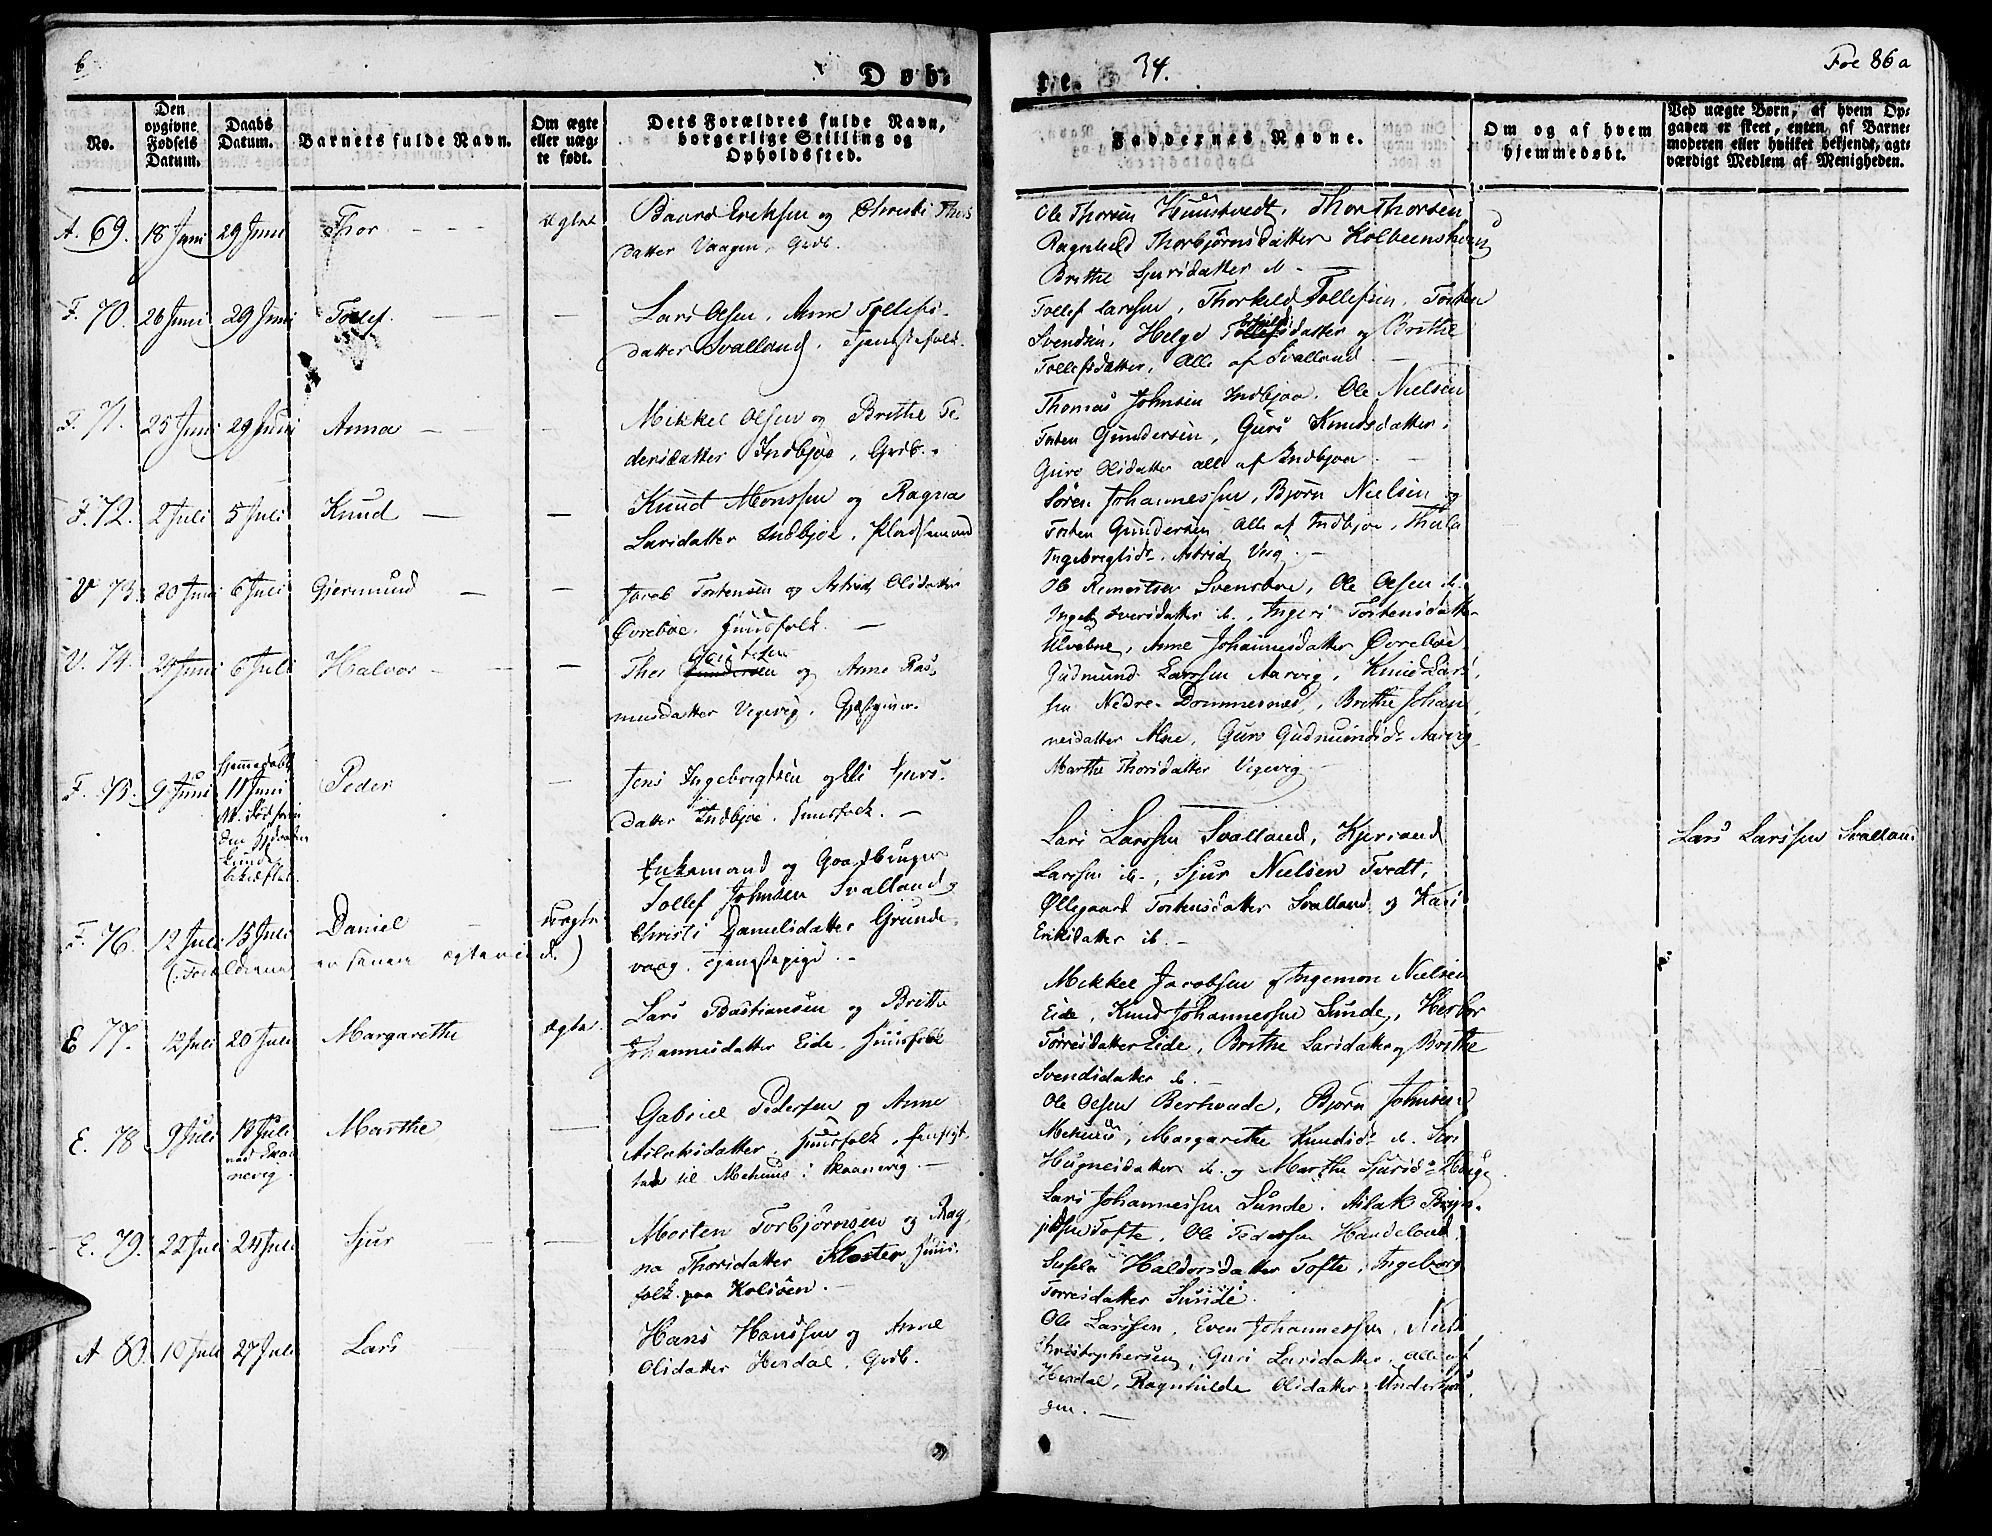 6
Døb-
te.
34.
Fol 86a
No.
Den opgivne Fødsels Datum.
Daabs Datum.
Barnets fulde Navn.
Om ægte eller uæg-
te født.
Dets Forældres fulde Navn,
borgerlige Stilling og
Opholdssted.
Faddernes Navne.
Om og af hvem
hjemmedøbt.
Ved uægte Børn, af hvem Op-
gaven er skeet, enten af Barne-
moderen eller hvilket bekjendt, agt-
værdigt Medlem af Menigheden.
A. 69. 18 Juni 29 Juni Thor ægte
Baard Eriksen og Christi Thors
datter Vaagen, Grdb.
Ole Thorsen Huustvedt, Thor Thorsen
Ragnhild Thorbjørnsdatter Kolbeenshavn
Brithe Sjursdatter ib.
F. 70. 26 Juni 29 Juni Tollef
Lars Olsen, Anne Tollefs-
datter Svalland, Tjenestefolk.
Tollef Larssen, Thorkild Tollefsen, Torsten
Svendsen, Helge datter og Brithe
Tollefsdatter, Alle af Svalland
F. 71. 25 Juni 29 Juni Anna
Mikkel Olsen og Brithe Pe
dersdatter Indbjoe, Grdb.
Thomas Johnsen Indbjoe, Ole Nielsen
Torsten Gundersen, Guri Knudsdatter,
Guro Olsdatter alle af Indbjoe
F. 72. 2 Juli 5 Juli Knud
Knud Monssen og Ragna
Larsdatter Indbjoe, Pladsemand
Søren Johannessen, Bjørn Nielsen og
Torsten Gundersen, Alle af Indbjoe,
Ingebregtsdr, Astrid
V. 73. 20 Juni 6 Juli Gjermund
Jacob Torstensen og Astrid Olsdatter
Øvreboe. Huusfolk.
Ole Svensboe, Ole Olsen ib.
Iversdatter ib., Ingeri Torstensdatter
Anne Johannesdatter Øvreboe
V. 74. 24 Juni 6 Juli Halvor
Gautesen
Thor Gundersen og Anne Ras-
musdatter Vigevig, Gjæstgiver.
Gudmund Larssen Aarvig, Knud Lars-
sen Nedre-Dommesnes, Brithe Johan-
nesdatter Alne, Guro Gudmundsdr Aarvig
Marthe Thorsdatter Vigevig
F. 75. 9 Juni
Hjemmedøbt
11 Juni
Peder
Jens Ingebregtsen og Eli Sjurs-
datter Indbjoe, Huusfolk.
F. 76. 12 Juli 15 Juli Daniel uægte
(: Forældrene er senere ægteviede.)
Enkemand og Gaardbruger
Tollef Johnsen Svalland og
Christi Danielsdatter Grunde-
vaag, Tjenestepige.
Lars Larssen Svalland, Kjersand
Larssen ib., Sjur Nielsen Tvedt,
Øllegaard Torstensdatter Svalland og Kari
Eriksdatter ib.
Lars Larssen Svalland
E 77. 12 Juli 20 Juli Margarethe ægte.
Lars Bastiansen og Brithe
Johannesdatter Eide, Huusfolk
Mikkel Jacobsen Ingemon Nielsen
Eide, Knud Johannessen Sunde, Herbor
Torresdatter Eide, Brithe Larsdatter og Brithe
Svendsdatter ib.
E. 78 9 Juli 13 Juli
ved Skaa-
nevig.
Marthe
Gabriel Pedersen og Anne
Aslaksdatter, Huusfolk,
til Mehuus i Skaanevig.
Ole Olsen Berhovde, Bjørn Johnsen
Mehuus, Margarethe Knudsdr ib.
Hugnesdatter ib. og Marthe Sjursdr
E. 79. 22 Juli 24 Juli Sjur
Morten Torbjørnsen og Rag-
na Thorsdatter Kloster, Huus-
folk paa Holsøen.
Lars Johannessen Sunde, Aslak Bryn-
jelsen Tofte, Ole Pedersen Handeland,
Sussela Haldorsdatter Tofte, Ingeborg
Torresdatter Sunde.
A 80. 10 Juli 27 Juli Lars
Hans Hanssen og Anne
Olsdatter Herdal, Grdb.
Ole Larssen, Even Johannessen, Niels
Christophersen, Guri Larsdatter, alle af
Herdal, Ragnhilde Olsdatter